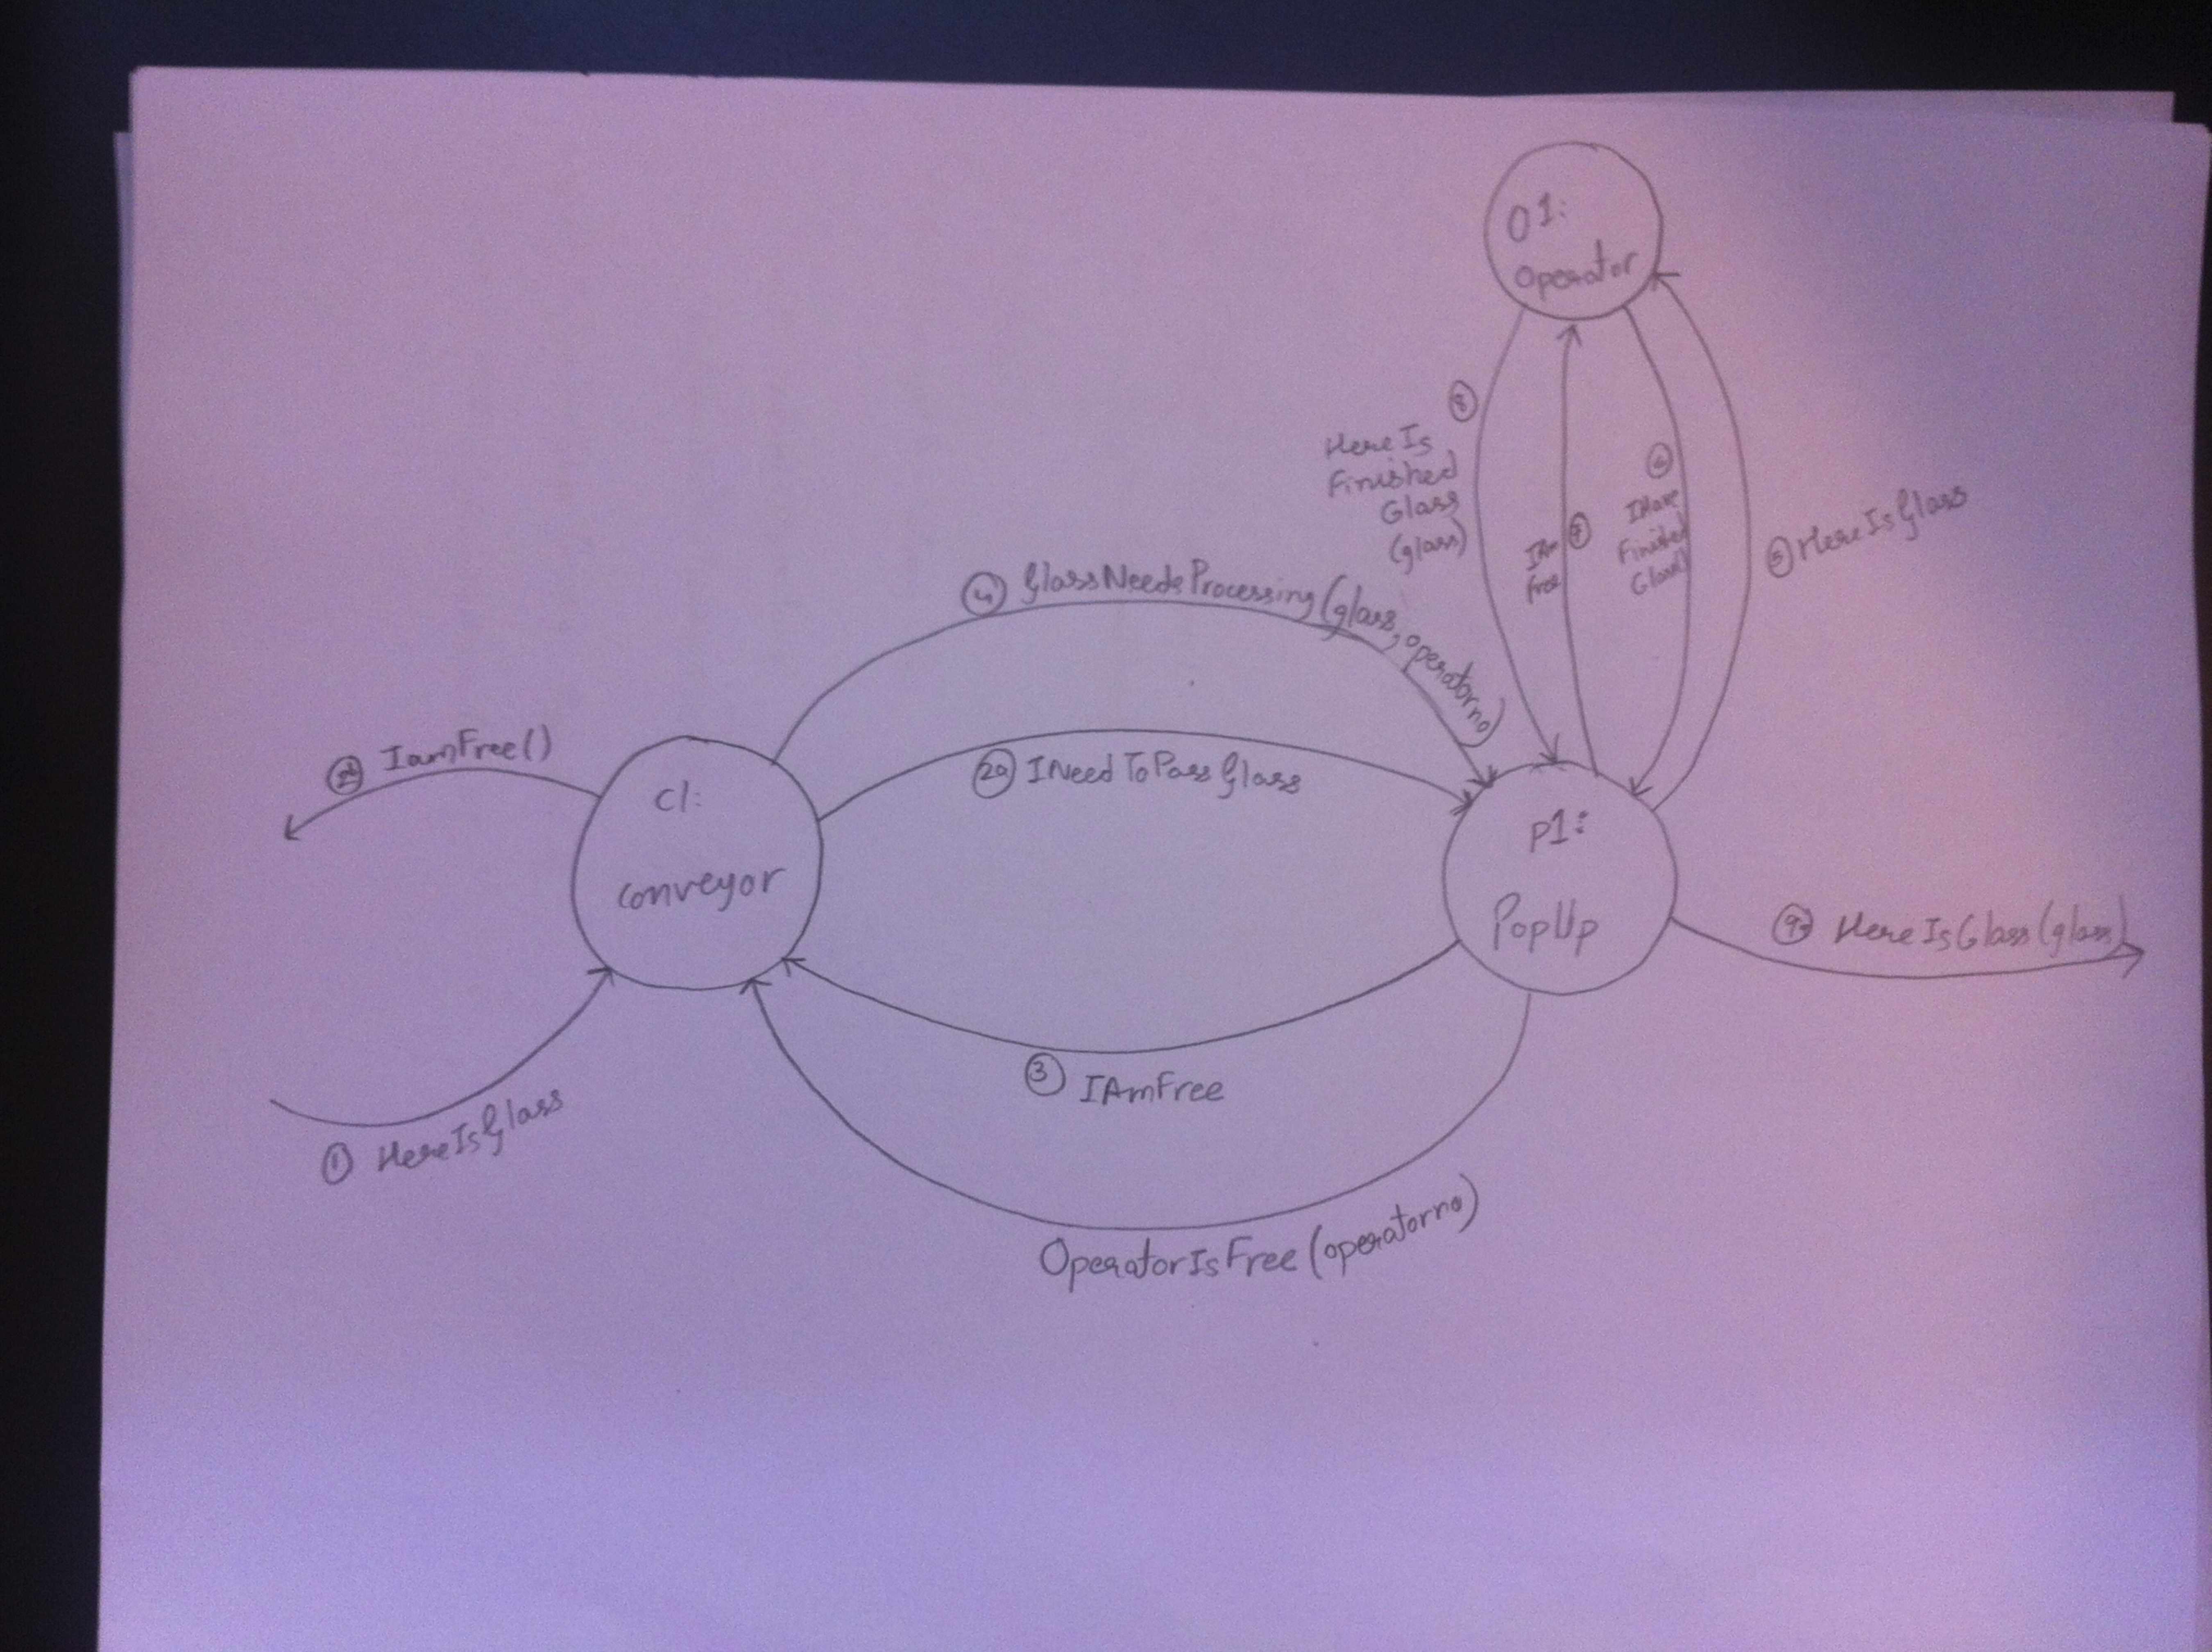 O1:
Operator
⑧
HereIs
Finished
Glass
(glass)
⑦
IAm
free
⑥
IHave
Finished
Glass()
⑤ HereIsGlass
④ GlassNeedsProcessing(glass, operatorno)
2b IamFree()
2a INeedToPassGlass
C1:
conveyor
p1:
PopUp
HereIsGlass(glass)
③ IAmFree
① HereIsGlass
OperatorIsFree(operatorno)